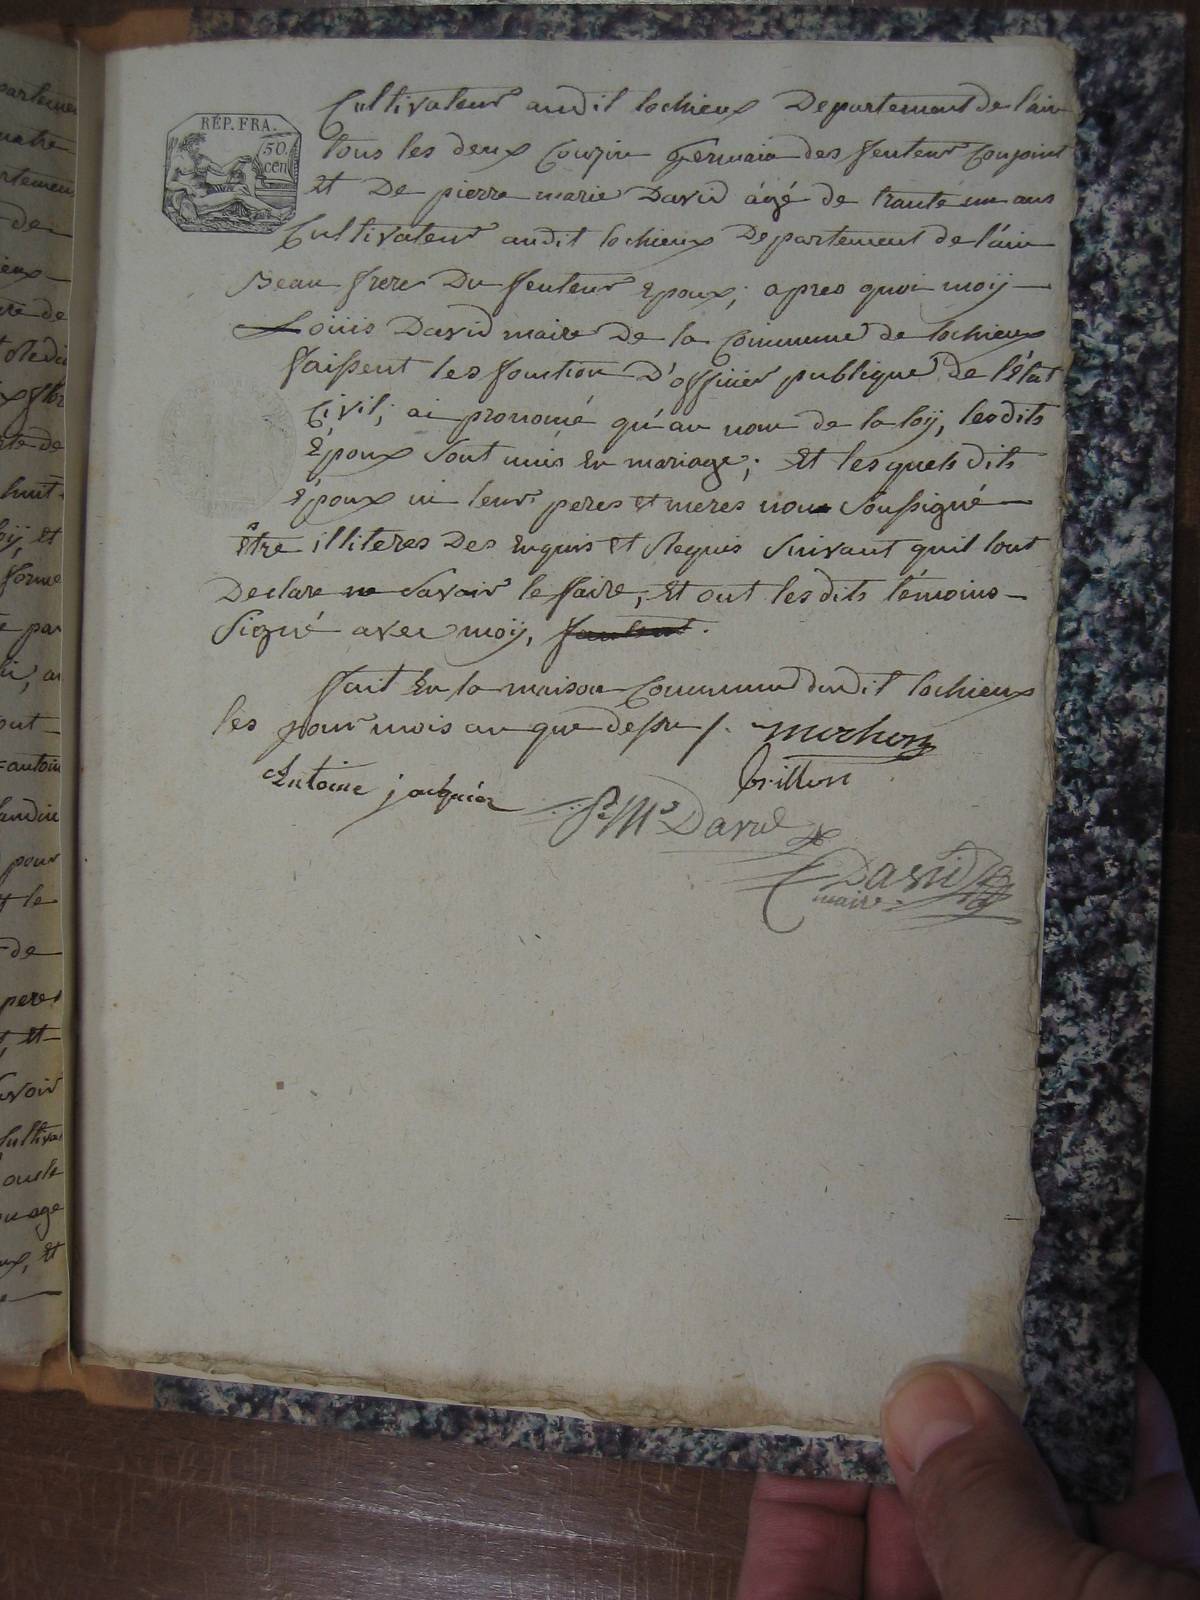 RÉP. FRA.
50
cen
Cultivateur audit lochieux Departement de l'ain
tous les deux Couzin germain des feuteur Conjoint
et De pierre marie David âgé de trante un ans
Cultivateur audit lochieux Departement de l'ain
Beau frere Du feuteur Epoux; apres quoi moÿ
Louis David maire De la Commune de lochieux
faissent les fonction D'officier publique de l'État
Civil; ai pronomé qu'au nom de la loÿ, les dits
Epoux sont unis En mariage; Et lesquels dits
Epoux ni leur peres et meres non soussigné
être illiteres Des Enquis et Requis suivant quil tout
Declare ne savoir le faire, Et ont lesdits témoins
Signé avec moÿ,
fait En la maison Commune dudit lochieux
les jour mois an que dessu /. mochon
Brillon
Antoine jacquier
P. M. David
David
maire